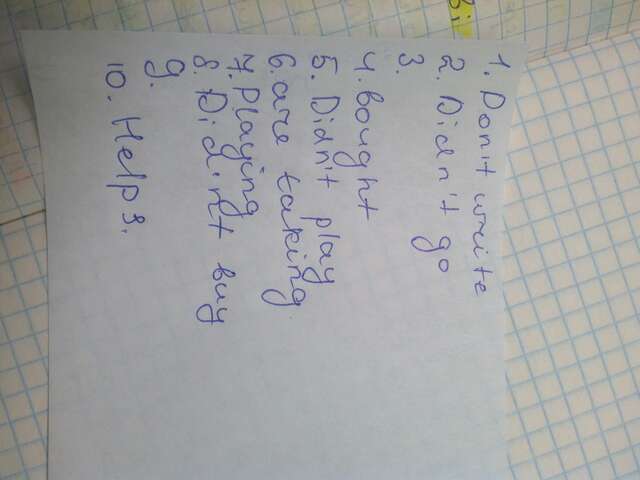 1. Don't write
2. Didn't go
3.
4. bought
5. Didn't play
6. are taking.
7. Playing
8. Did.n't buy
9.
10. Helps.
Bi